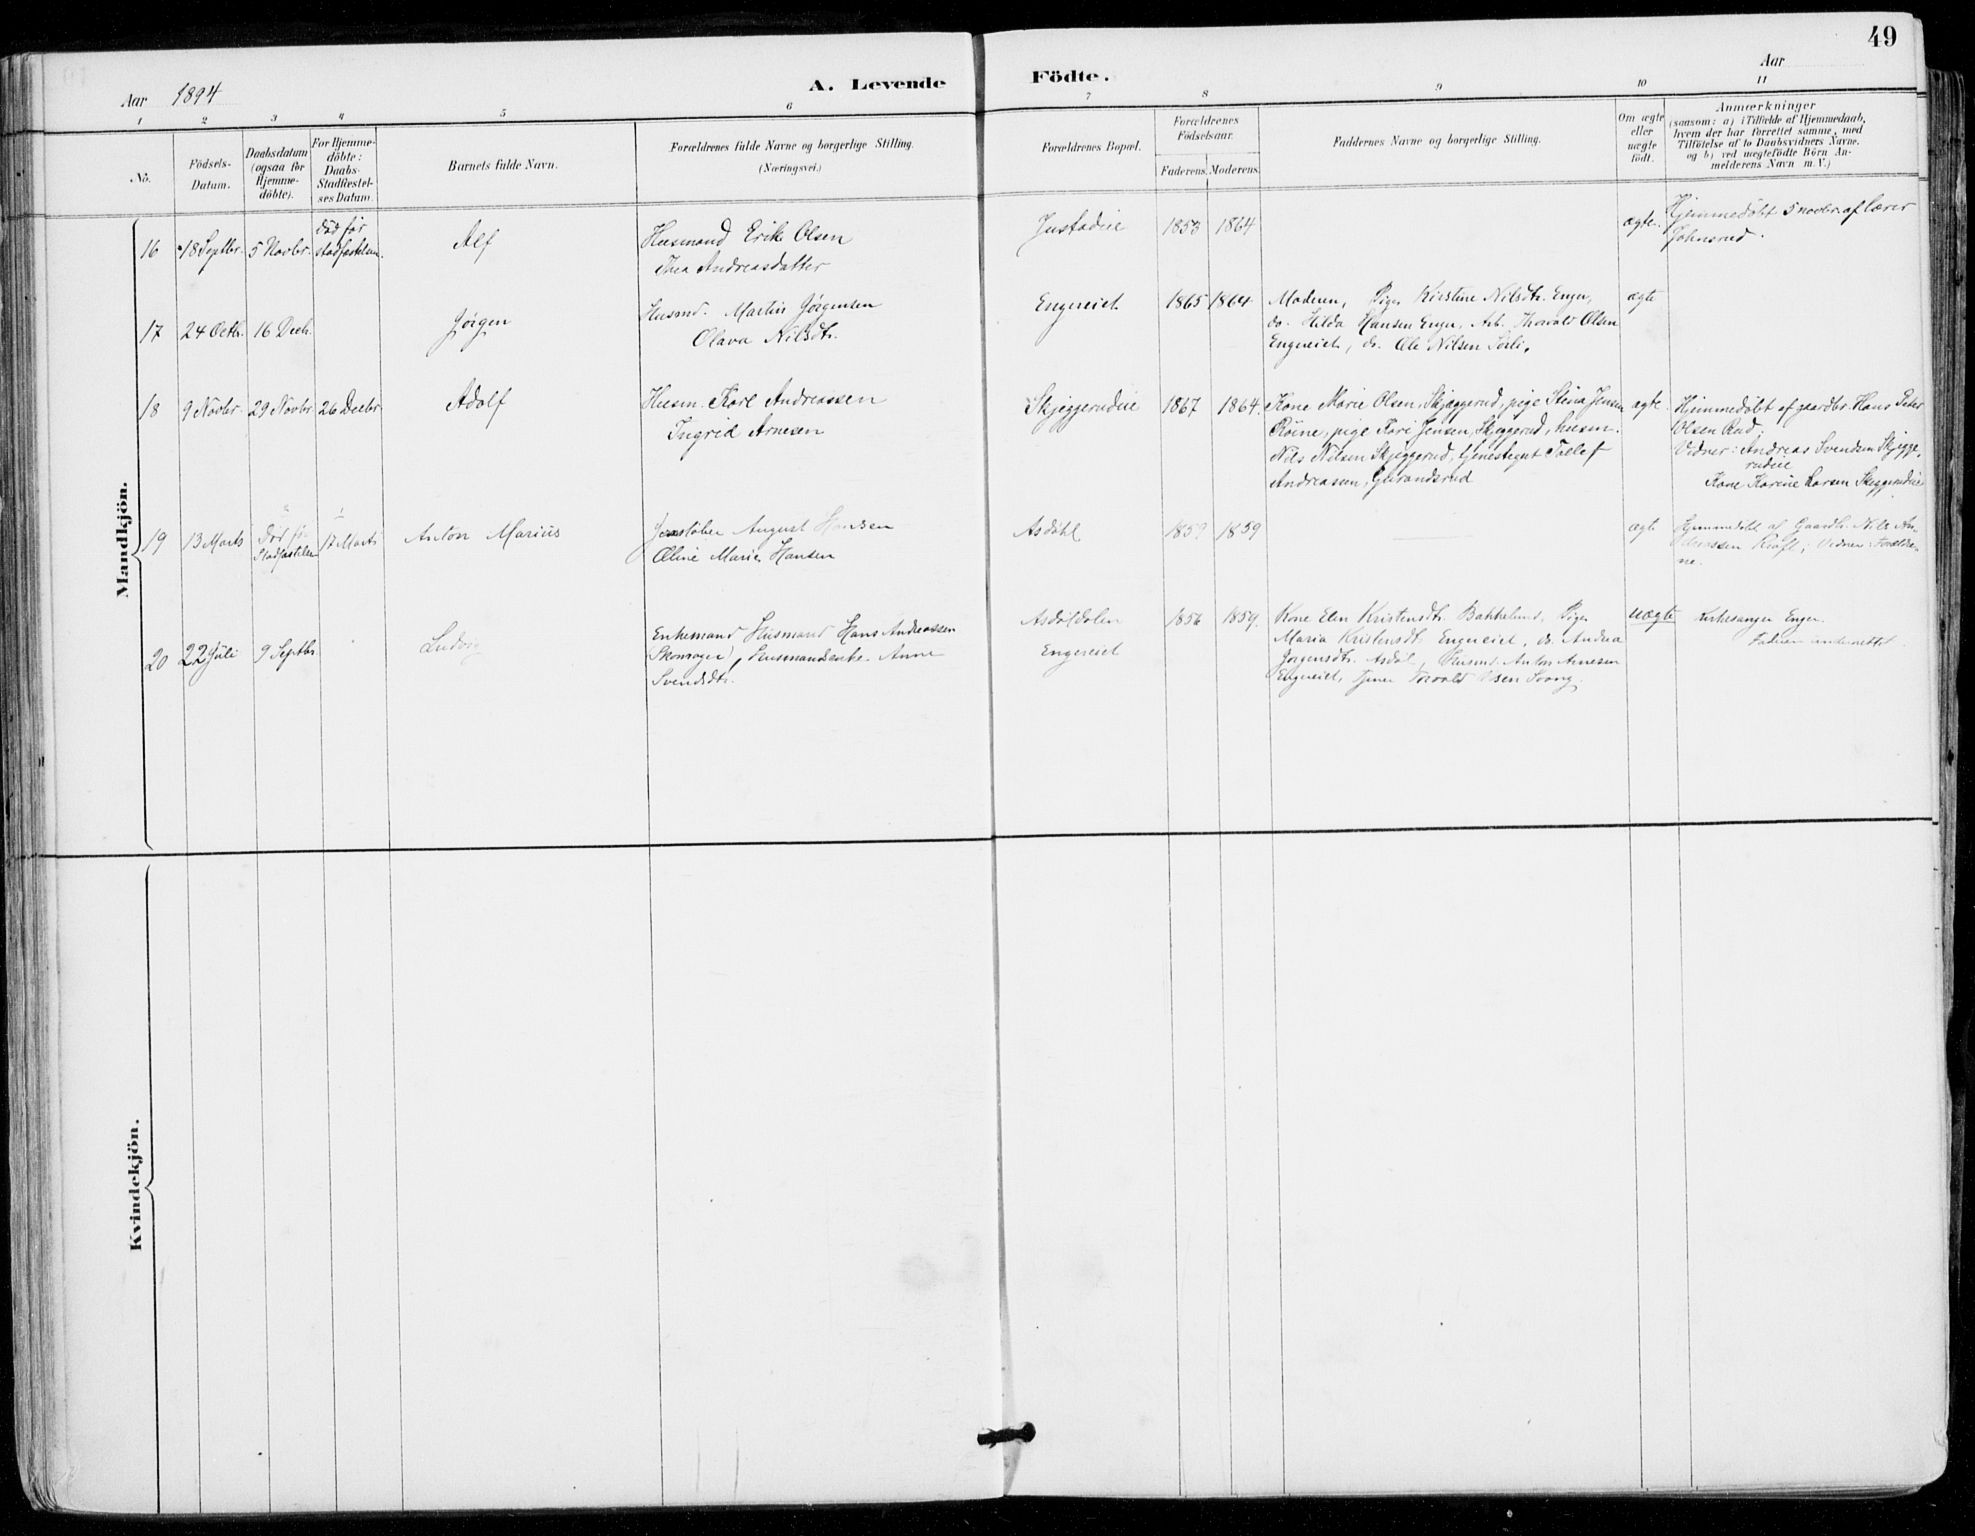 49
Aar 1894
A. Levende
Födte.
Aar
1 2 3 4 5 6 7 8 9 10 11
No.
Födsels-
Datum.
Daabsdatum
(ogsaa for
Hjemme-
döbte).
For Hjemme-
döbte:
Daabs-
Stadfæstel-
ses Datum.
Barnets fulde Navn.
Forældrenes fulde Navne og borgerlige Stilling.
(Næringsvei.)
Forældrenes Bopæl.
Forældrenes
Födselsaar.
Faderens. Moderens.
Faddernes Navne og borgerlige Stilling.
Om ægte
eller
uægte
födt.
Anmærkninger
(saasom: a) i Tilfælde af Hjemmedaab,
hvem der har forrettet samme, med
Tilföielse af to Daabsvidners Navne,
og b) ved uægtefödte Börn An-
melderens Navn m. V.)
Mandkjön.
16 18 Septbr. 5 Novbr.
død før
stadfæstelsen.
Alf
Husmand Erik Olsen
Thea Andreasdatter
Justadeie
1853 1864
ægte.
Hjemmedöbt 5 novbr. af lærer
Johnsrud.
17 24 Octb. 16 Decb.
Jörgen
Husmd. Martin Jörgensen
Olava Nilsdtr.
Engereiet
1865 1864
Moderen, Pige Kirstine Nilsdtr. Enger,
do. Hilda Hansen Enger, Arb. Thorvald Olsen
Engereiet, do. Ole Nilsen Sörli.
ægte
18 9 Novbr. 29 Novbr. 26 Decbr.
Adolf
Husm. Karl Andreassen
Ingrid Arnesen
Skjeggerudeie
1867 1864.
Kone Marie Olsen, Skjæggerud, pige Stina Jensen
pige Kari Jensen, Skjeggerud, husm.
Nils Nilsen Skjeggerud, tjenestegut Tollef
Andreassen,
ægte
Hjemmedöbt af gaardbr. Hans Peter
Olsen Rud.
Vidner: Andreas Svendsen Skjegge-
rudeie
Kone Karine Larsen Skjeggerudeie
19 13 Marts
Död før
Stadfæstelsen
17 Marts
Anton Marius
Jernstöber August Hansen
Oline Marie Hansen
Asdöhl
1859 1859
ægte
Hjemmedöbt af Gaardbr. Nils An-
dreassen Kroft; Vidner: Forældre-
ne.
20 22 Juli 9 Septbr.
Ludvig
Enkemand Husmand Hans Andreassen
(Skomager), Husmandsenke Anne
Svendsdtr.
Asdöldalen
Engereiet
1856 1859.
Kone Elen Kristensdtr. Bakkelund, Pige
Maria Kristensdtr. Engereiet, do. Andrea
Jörgensdtr. Asdöl, Husmd. Anton Arnesen
Engereiet, Tjener Torvald Olsen
uægte
Kirkesanger Enger.
Faderen underrettet.
Kvindekjön.